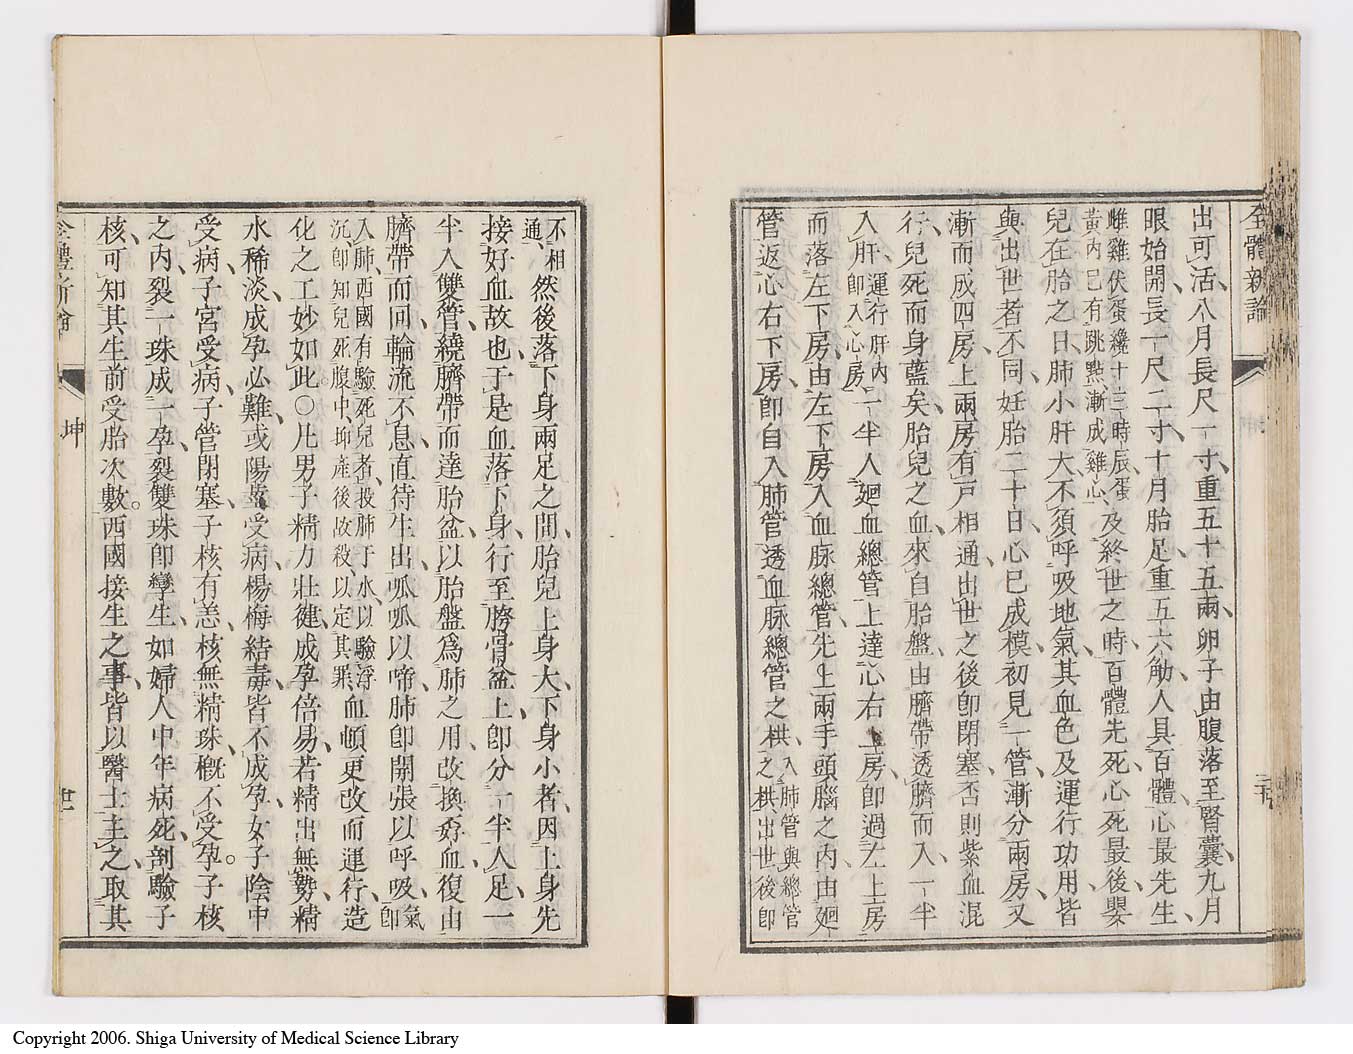 全體新論
出可活八月長尺一寸重五十五兩卵子由腹落至腎囊九月
眼始開長一尺二寸十月胎足重五六觔人具百體心最先生
雌雞伏蛋纔十二時辰蛋黃內已有跳點漸成雞心及終世之時百體先死心死最後嬰
兒在胎之日肺小肝大不須呼吸地氣其血色及運行功用皆
與出世者不同妊胎二十日心已成模初見一管漸分兩房又
漸而成四房上兩房有戸相通出世之後卽閉塞否則紫血混
行兒死而身藍矣胎兒之血來自胎盤由臍帶透臍而入一半
入肝運行肝內卽入心房一半人廻血總管上達心右上房卽過左上房
而落左下房由左下房入血脉總管先上兩手頭腦之內由廻
管返心右下房卽自入肺管透血脉總管之栱入肺管與總管之栱出世後卽
不相通然後落下身兩足之間胎兒上身大下身小者因上身先
接好血故也于是血落下身行至胯骨盆上卽分一半人足一
半入雙管繞臍帶而達胎盆以胎盤爲肺之用改換好血復由
臍帶而回輪流不息直待生出呱呱以啼肺卽開張以呼吸氣卽
入肺西國有驗死兒者投肺于水以驗浮沉卽知兒死腹中抑產後故殺以定其罪血頓更改而運行造
化之工妙如此○凡男子精力壯健成孕倍易若精出無勢精
水稀淡成孕必難或陽莖受病楊梅結毒皆不成孕女子陰中
受病子宮受病子管閉塞子核有恙核無精珠槪不受孕子核
之內裂一珠成一孕裂雙珠卽孿生如婦人中年病死剖驗子
核可知其生前受胎次數西國接生之事皆以醫士主之取其
全體新論
坤
廿一